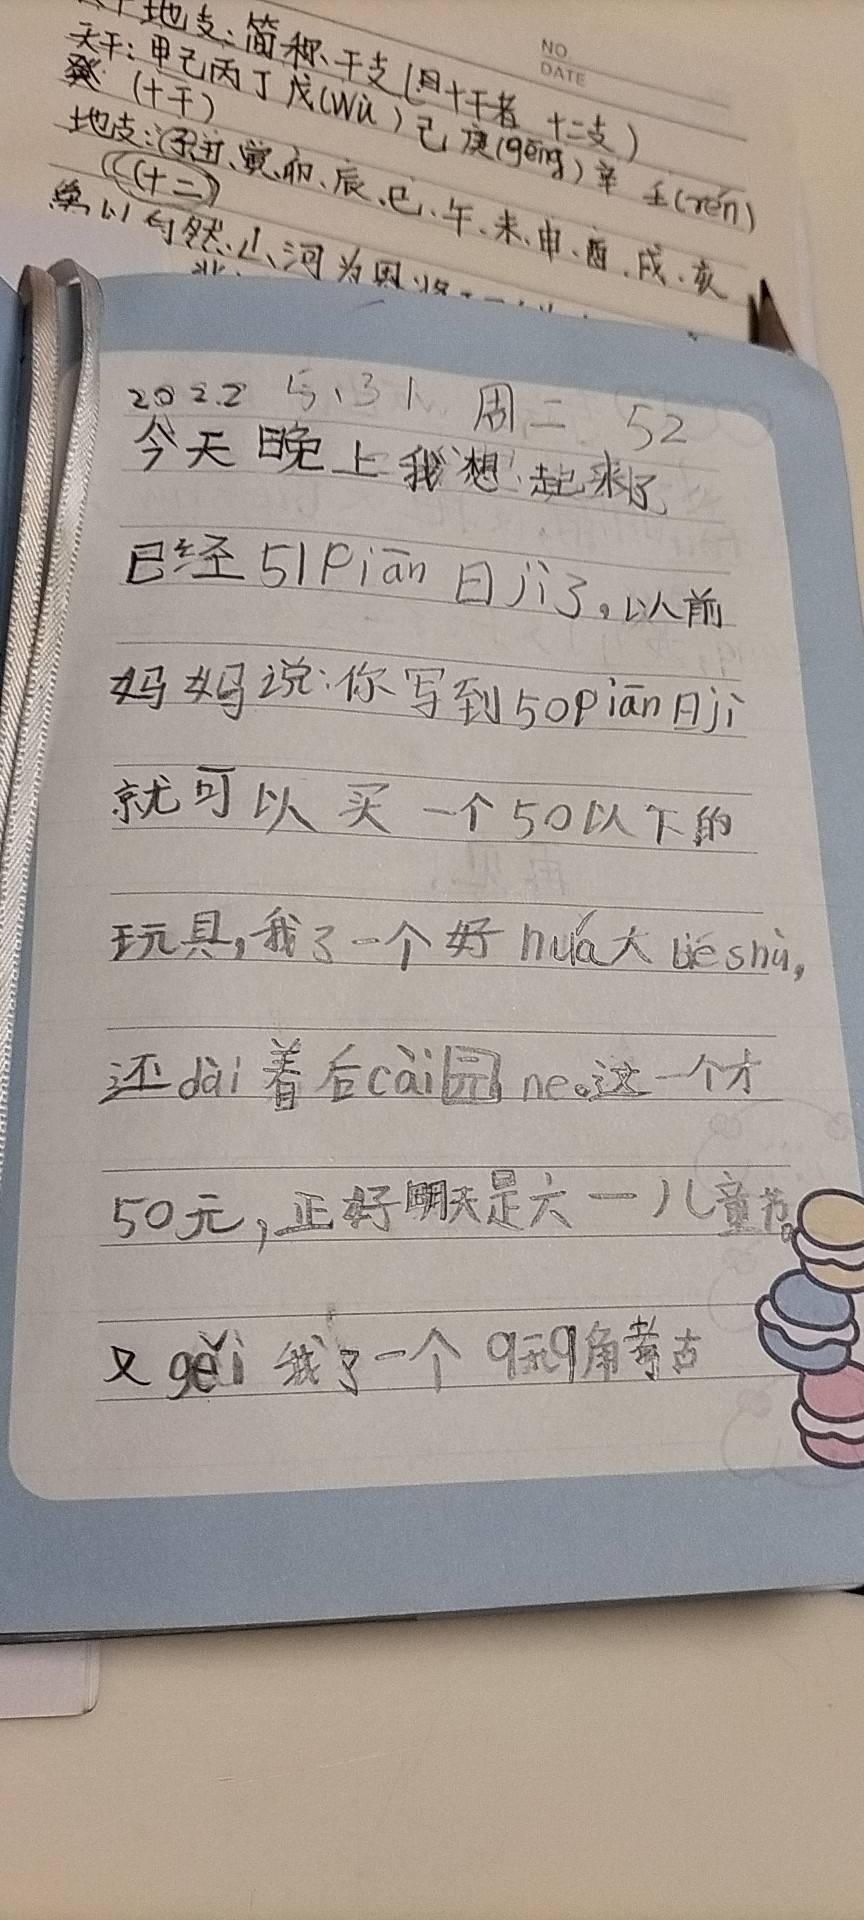 地支:简称、干支(因十干者 十二支)
天干:甲己丙丁戊(wù)己庚(gēng)辛 壬(rén)
癸(十干)
地支:(子丑、寅、卯、辰、巳、午、未、申、酉、戌、亥
((十二))
自然、山、河为
NO
DATE
2022 5、31 周二 52
今天晚上我想起来了
已经51piān日jì了。以前
妈妈说:你写到50piān日jì
就可以买一个50以下的
玩具,我了一个好huá大biéshù,
还dài着后cài园ne。这一个才
50元,正好明天是六一儿童节。
又gěi我了一个9元9角考古